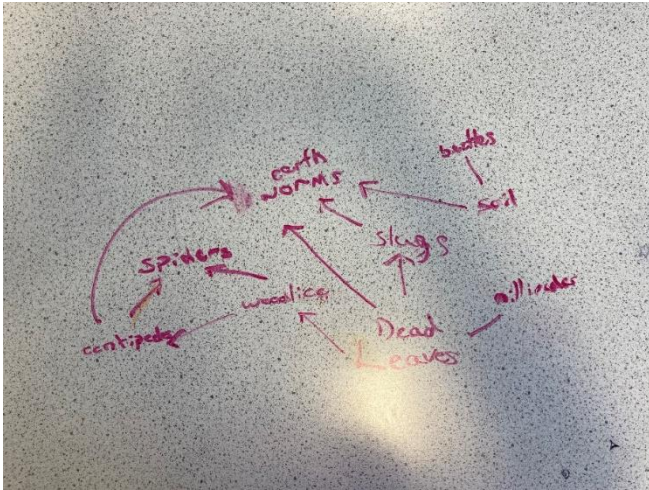 beatles
earth
worms
soil
slugs
spiders
woodlice
millipedes
centipedes
Dead
Leaves